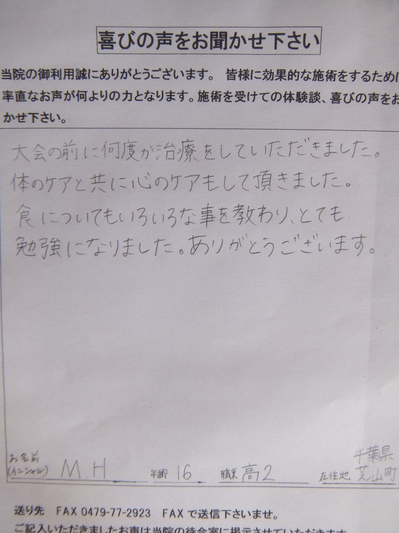 喜びの声をお聞かせ下さい
当院の御利用誠にありがとうございます。 皆様に効果的な施術をするために
率直なお声が何よりの力となります。施術を受けての体験談、喜びの声をお
かせ下さい。
大会の前に何度か治療をしていただきました。
体のケアと共に心のケアもして頂きました。
食についてもいろいろな事を教わり、とても
勉強になりました。ありがとうございます。
お名前(イニシャル) M.H 年齢 16 職業 高2 在住地 千葉県芝山町
送り先 FAX 0479-77-2923 FAXで送信下さいませ。
ご記入いただきましたお声は当院の待合室に掲示させていただきます